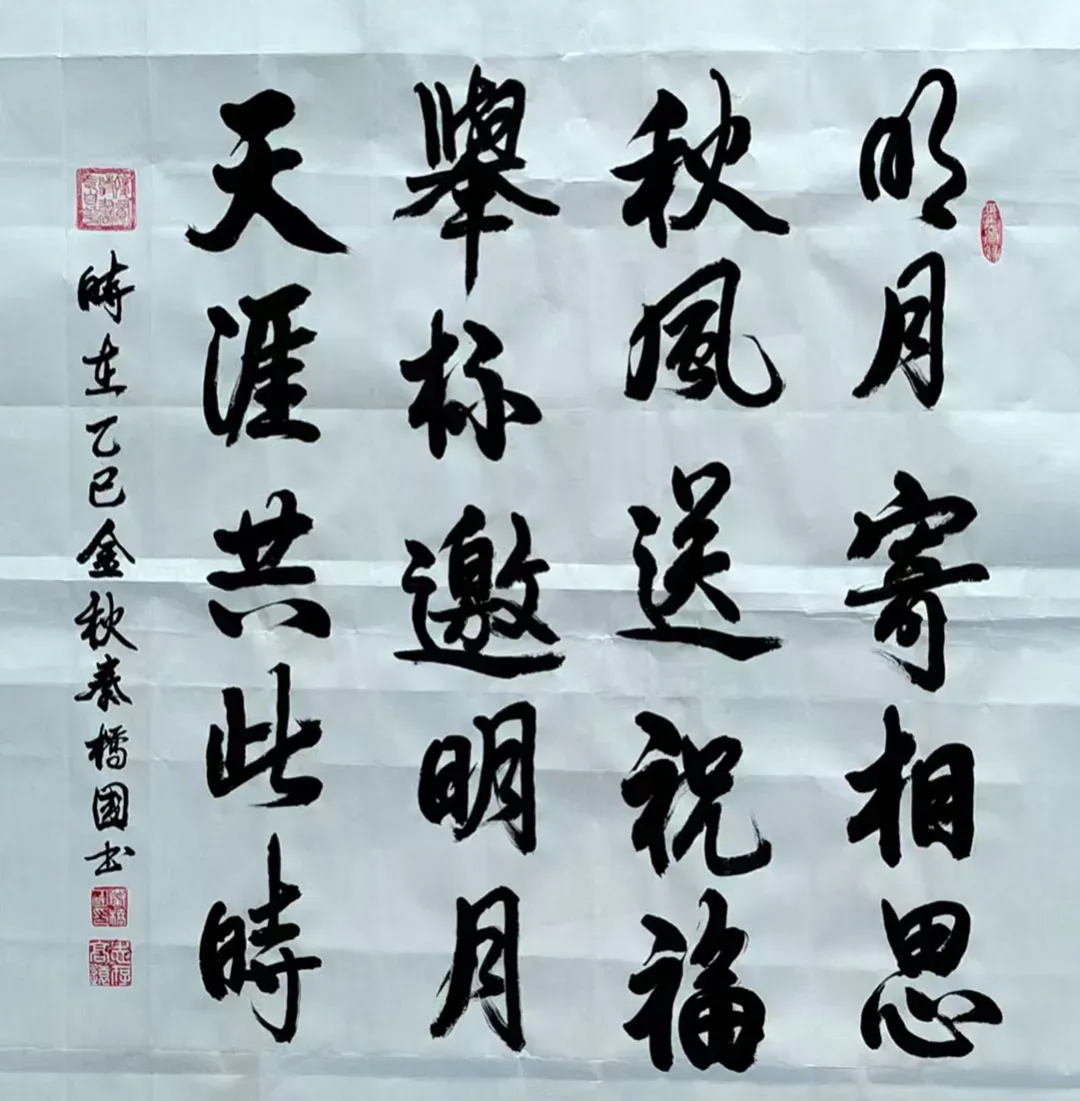 明月寄相思
秋風送祝福
舉杯邀明月
天涯共此時
時在乙巳金秋秦橋國书
志存高遠